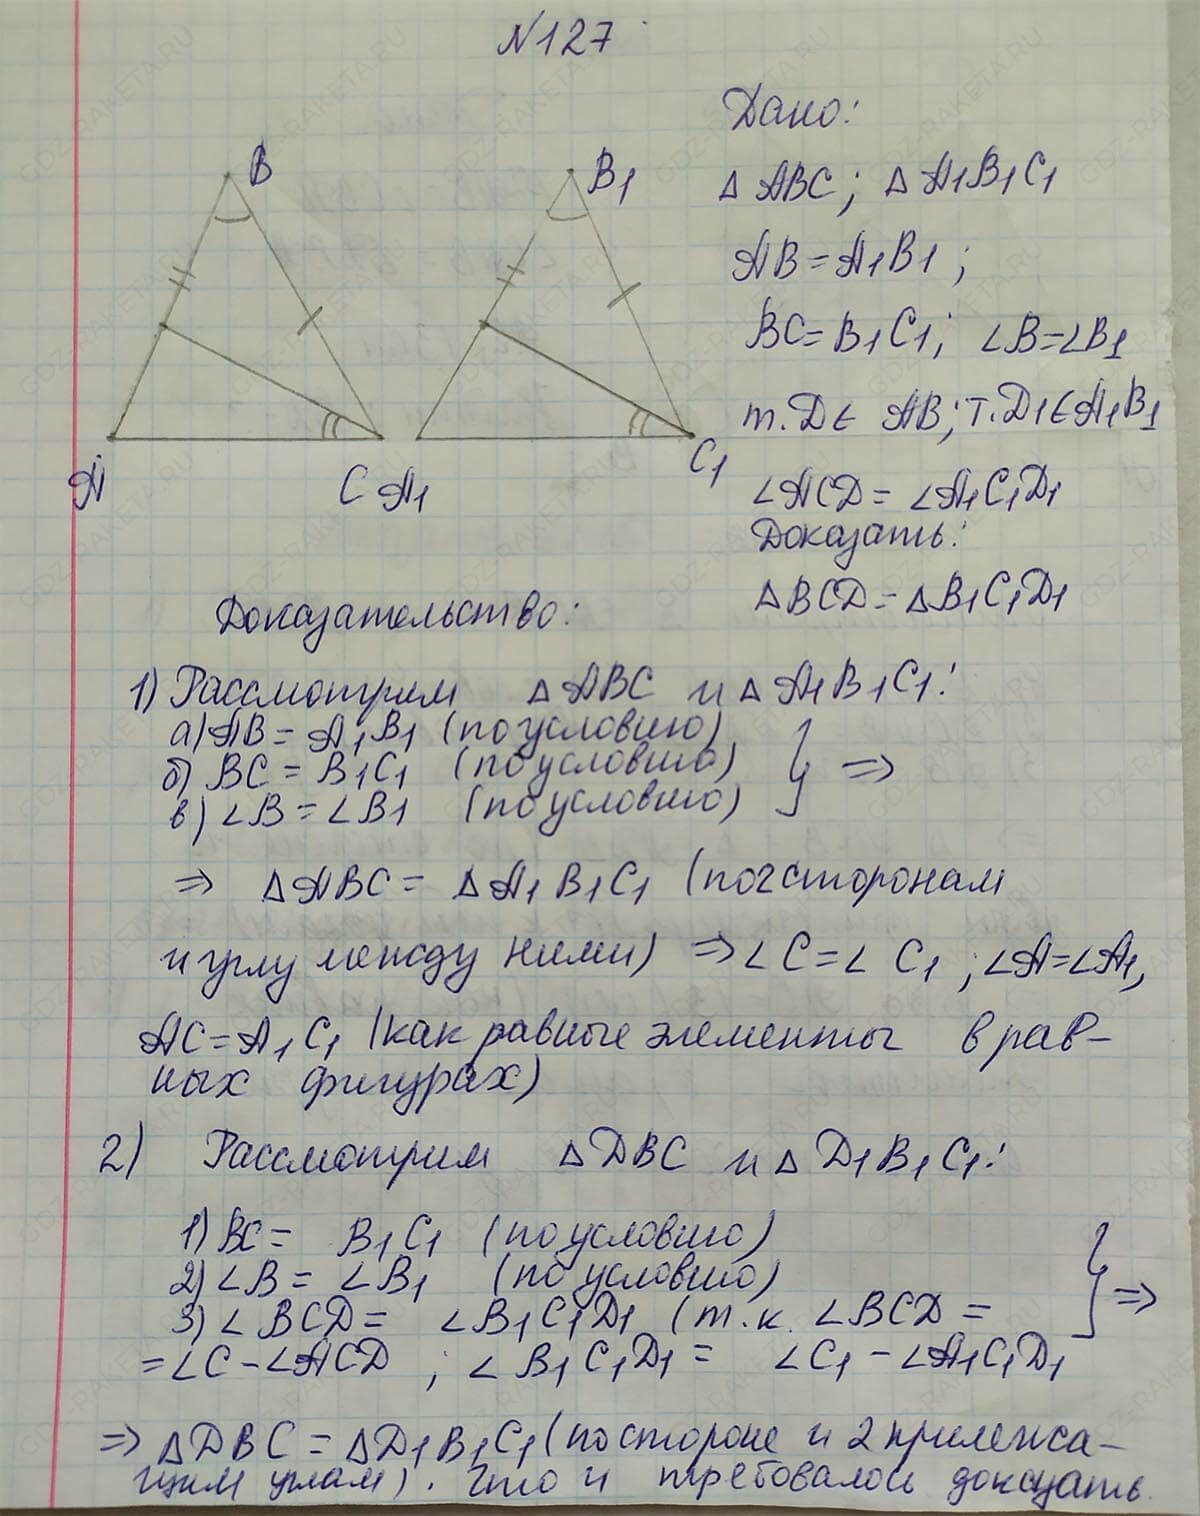 N127
Дано:
B
B1
△ ABC; △ A1B1C1
AB = A1B1;
BC = B1C1; ∠B=∠B1
т. D ∈ AB; т. D1 ∈ A1B1
A
C
A1
C1
∠ACD = ∠A1C1D1
Доказать:
△BCD = △B1C1D1
Доказательство:
1) Рассмотрим △ABC и △A1B1C1:
а) AB = A1B1 (по условию)
б) BC = B1C1 (по условию)
в) ∠B = ∠B1 (по условию)
} ⇒
⇒ △ABC = △A1B1C1 (по 2 сторонам
и углу между ними) ⇒ ∠C = ∠C1; ∠A=∠A1,
AC = A1C1 (как равные элементы в рав-
ных фигурах)
2) Рассмотрим △DBC и △D1B1C1:
1) BC = B1C1 (по условию)
2) ∠B = ∠B1 (по условию)
3) ∠BCD = ∠B1C1D1 (т.к. ∠BCD =
} ⇒
= ∠C - ∠ACD ; ∠B1C1D1 = ∠C1 - ∠A1C1D1
⇒ △DBC = △D1B1C1 (по стороне и 2 прилежа-
щим углам). Что и требовалось доказать.